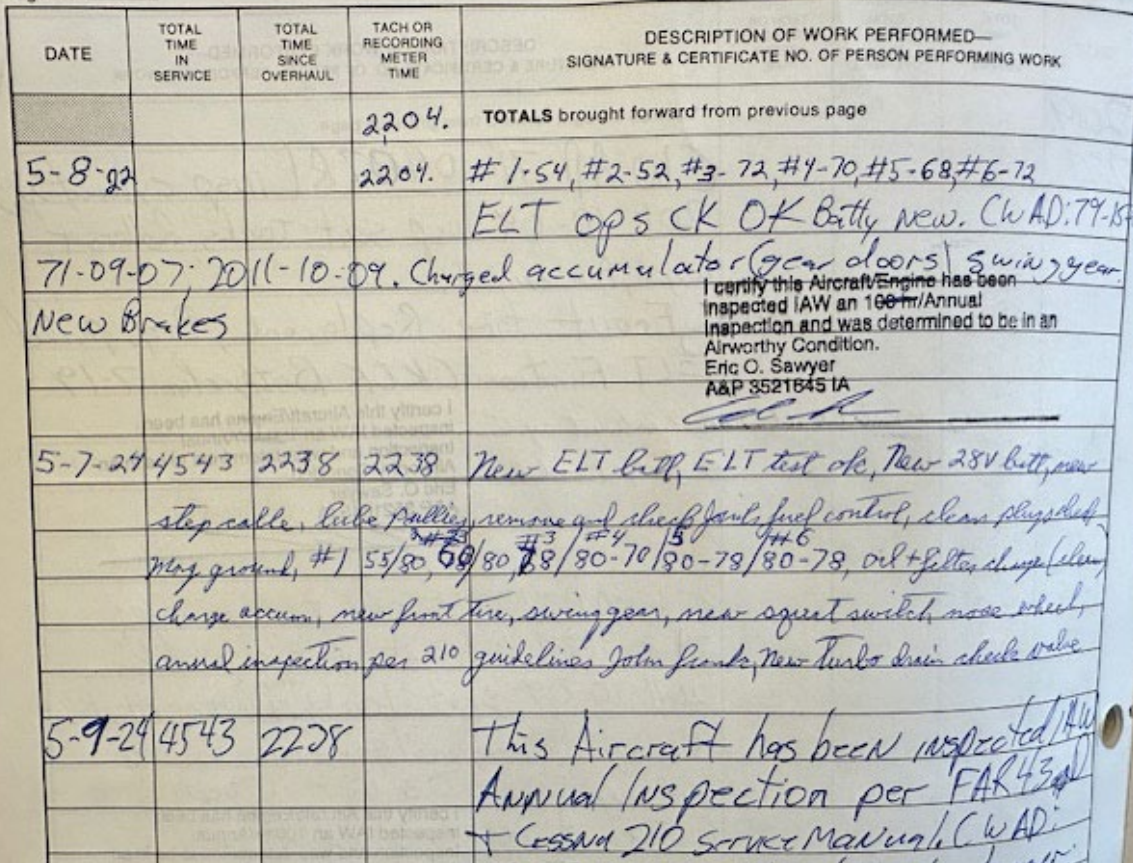 DATE TOTAL TIME IN SERVICE TOTAL TIME SINCE OVERHAUL TACH OR RECORDING METER TIME DESCRIPTION OF WORK PERFORMED— SIGNATURE & CERTIFICATE NO. OF PERSON PERFORMING WORK
2204. TOTALS brought forward from previous page
5-8-22 2204. #1-54, #2-52, #3-72, #4-70, #5-68, #6-72
ELT ops CK OK Batty New. CWAD: 79-15
71-09-07, 2011-10-09. Charged accumulator (gear doors) swing gear.
New Brakes
I certify this Aircraft/Engine has been
inspected IAW an 100 hr/Annual
Inspection and was determined to be in an
Airworthy Condition.
Eric O. Sawyer
A&P 3521645 IA
5-7-24 4543 2238 2238 New ELT batt, ELT test ok, New 28V batt, new
step cable, lube pullies, remove and check fuel control, clean plugs
Mag ground, #1 55/80, /80, #3 78/80-70/80-78/80-78, oil + filter change (clean)
#4 5 #6
charge accum, new front tire, swing gear, new squat switch nose wheel,
annual inspection per 210 guidelines John Frank, New turbo drain check valve
5-9-24 4543 2238 This Aircraft has been inspected IAW
Annual Inspection per FAR43
+ Cessna 210 Service Manual. CWAD: